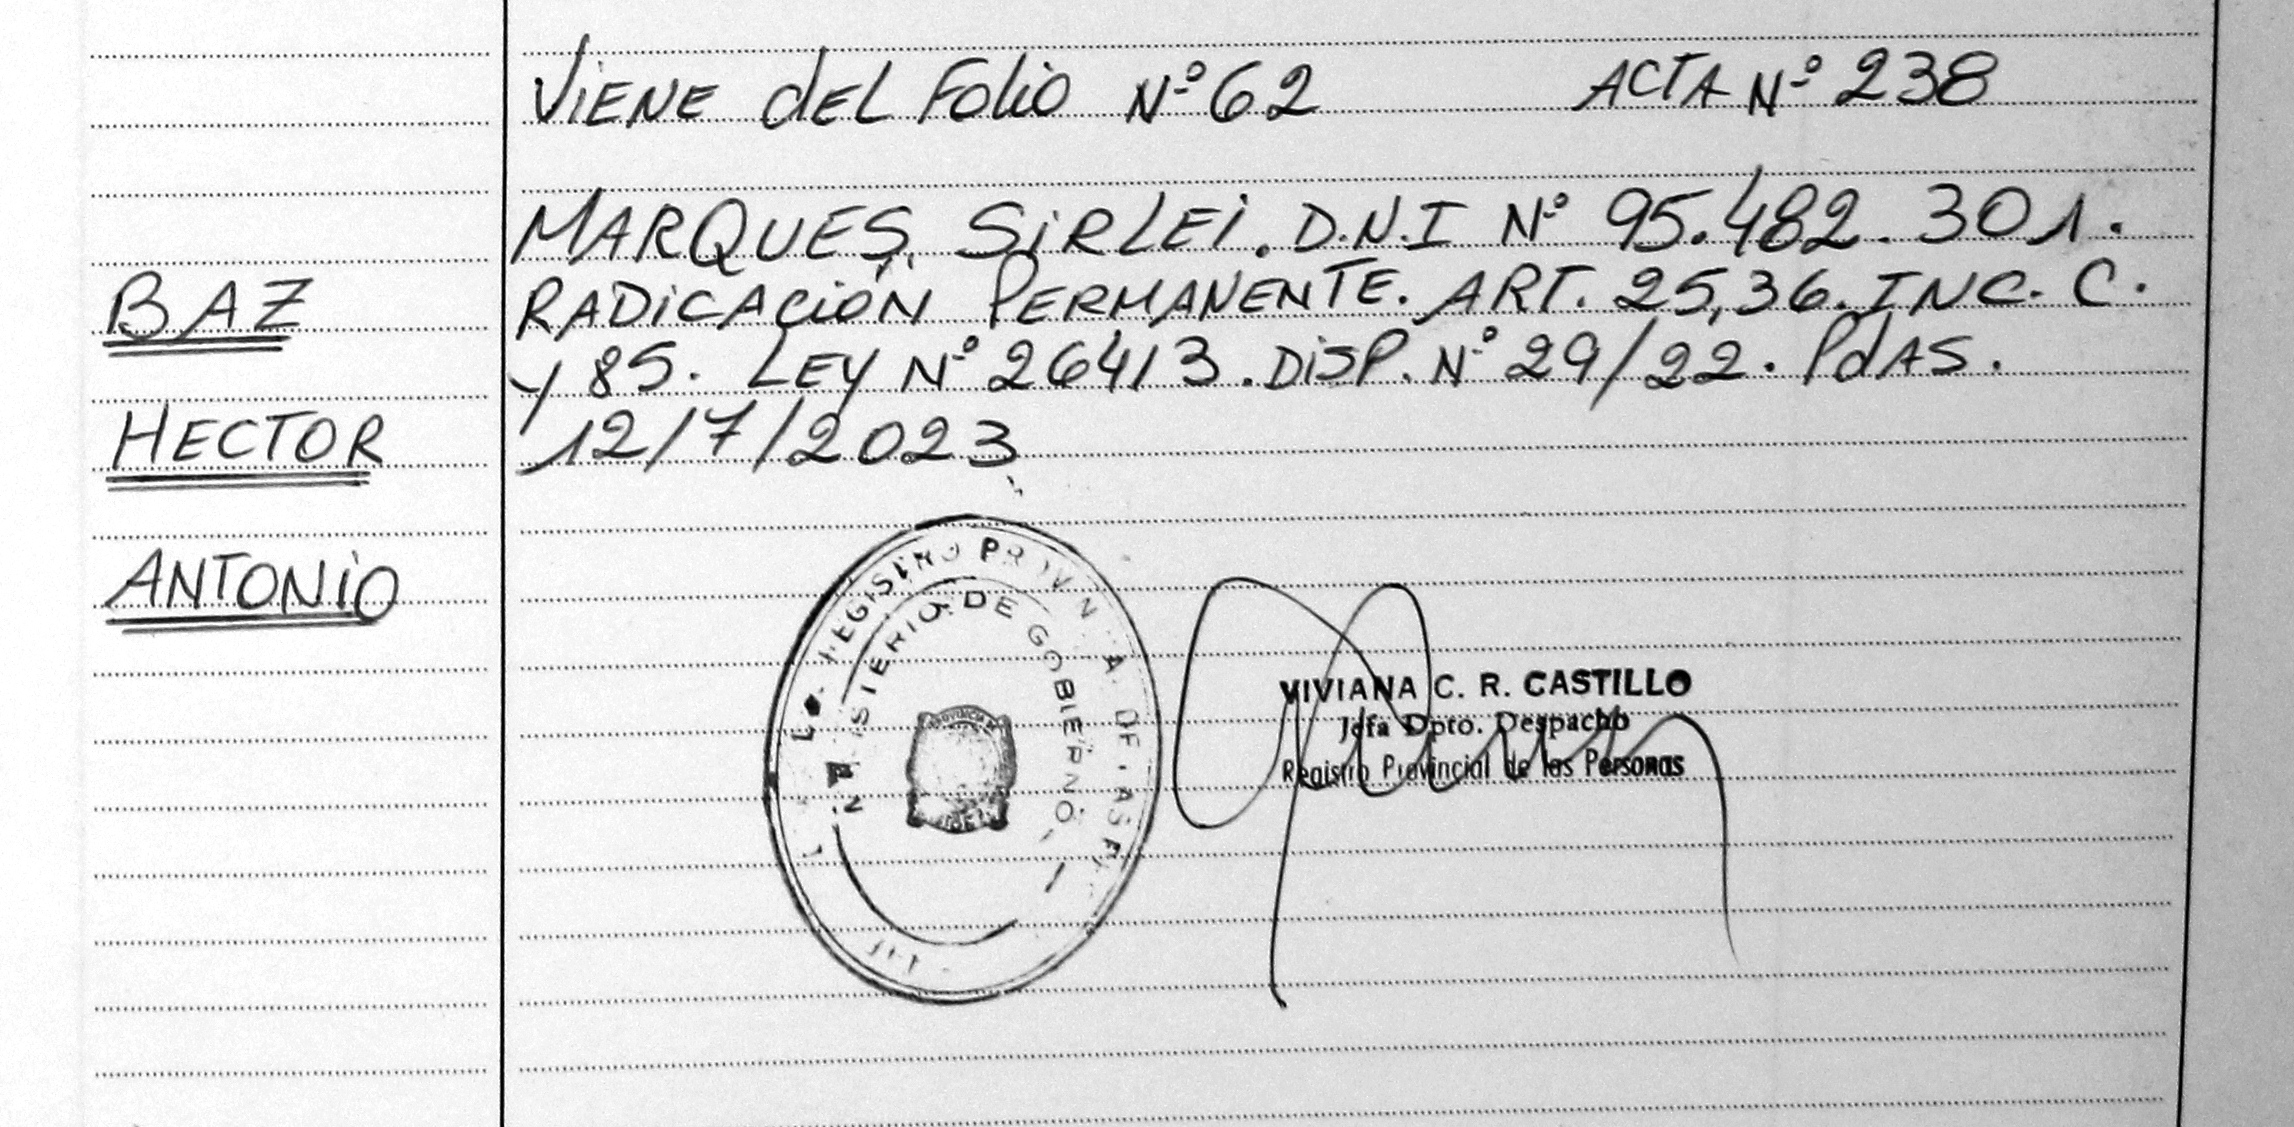 ViENE dEL Folio Nº 62 ACTA Nº 238
MARQUES, SiRLEi. D.N.I Nº 95.482.301.
BAZ
RADiCACiÓN PERMANENTE. ART. 25,36. INC. C.
Y 85. LEY Nº 26413. DiSP. Nº 29/22. PdAS.
HECTOR
12/7/2023
ANTONiO
REGISTRO PROVIN
DE GOBIERNO
VIVIANA C. R. CASTILLO
Jefa Dpto. Despacho
Registro Provincial de las Personas